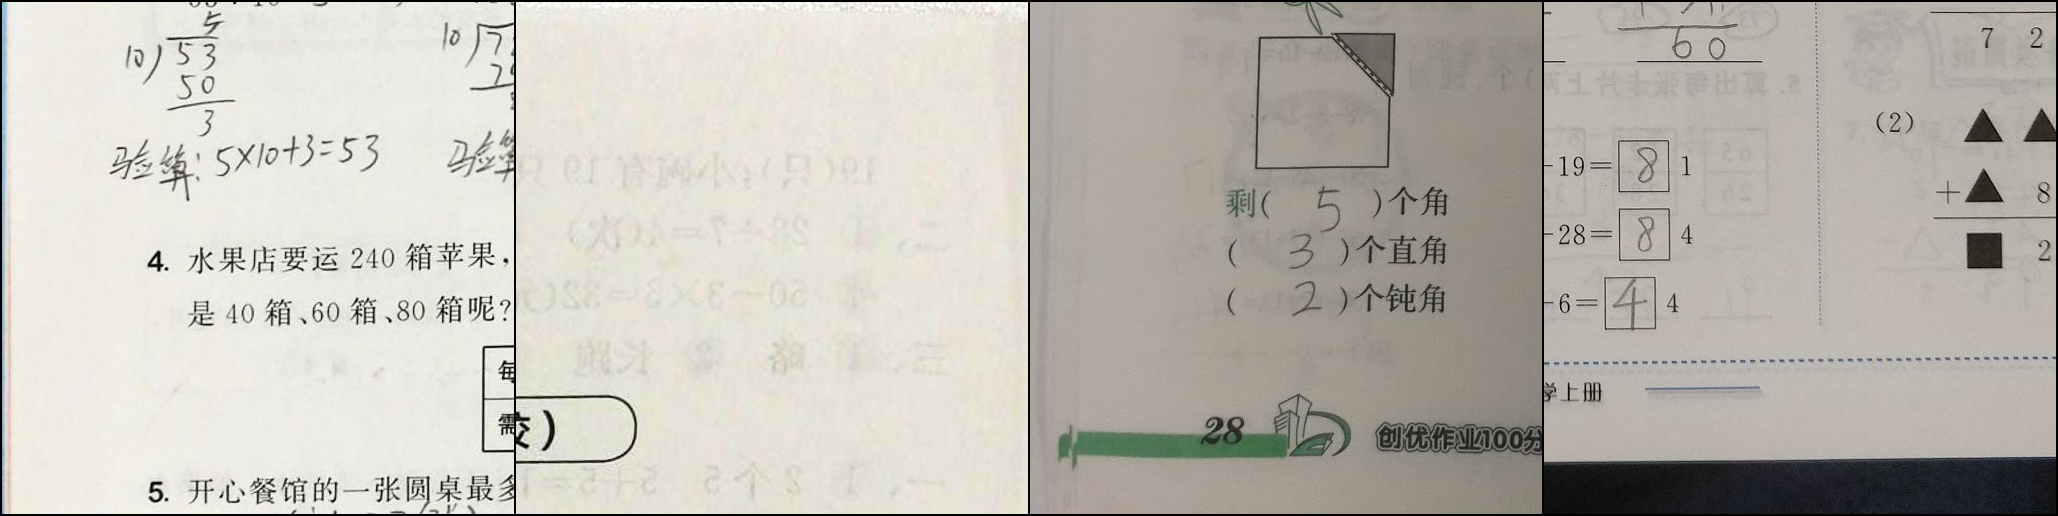 5
10)53
50
3
验算:5×10+3=53
10)7
验算
4. 水果店要运 240 箱苹果,
是 40 箱、60 箱、80 箱呢?
每
需
5. 开心餐馆的一张圆桌最多
19(只);小柯有 19 只
二、1 28÷7=4(次)
2 50-3×6=32(元
三、1 略 2 长跑
)
一、1 2个5 5+5=1
剩( 5 )个角
( 3 )个直角
( 2 )个钝角
28 创优作业100分
60
-19=8 1
-28=8 4
-6=4 4
学上册
7 2
(2) ▲ ▲
+▲ 8
■ 2